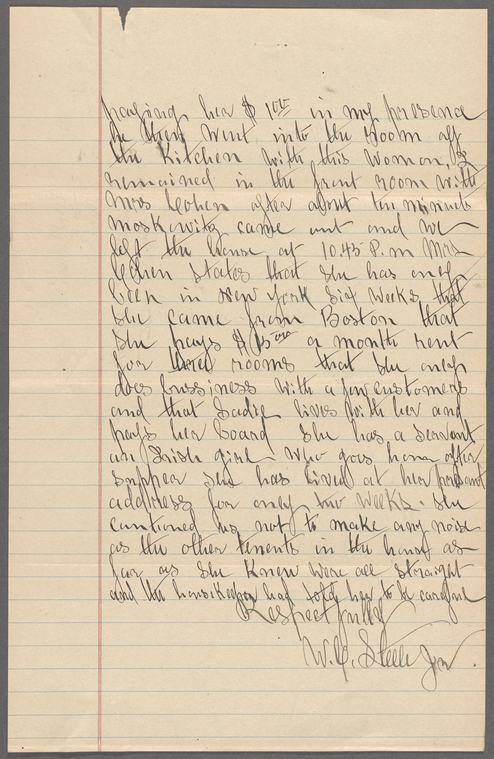 paying her $1.00 in my presence
he then went into the room off
the Kitchen with this woman, I
remained in the front room with
Mrs Cohen after about ten minuets
Moskowitz came out and we
left the house at 10.45 P.m Mrs
Cohen states that she has only
been in New York Six Weeks that
She came from Boston that
She pays $15 a month rent
for three rooms that she only
does bussiness with a few customers
and that Sadie lives with her and
pays her board She has a servant
an Irish girl who goes home after
supper she has lived at her present
address for only two weeks. She
cautioned us not to make any noise
as the other tenents in the house as
far as She Knew were all straight
and the housekeeper had told her to be careful
Respectfully
W. C. Steele Jr